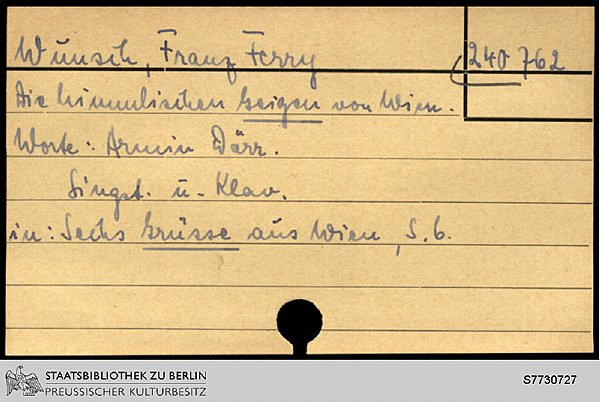 Wunsch, Franz Ferry
240 762
Die himmlischen Geigen von Wien.
Worte: Armin Därr.
Singst. u. Klav.
in: Sechs Grüsse aus Wien, S. 6.
STAATSBIBLIOTHEK ZU BERLIN
PREUSSISCHER KULTURBESITZ
S7730727